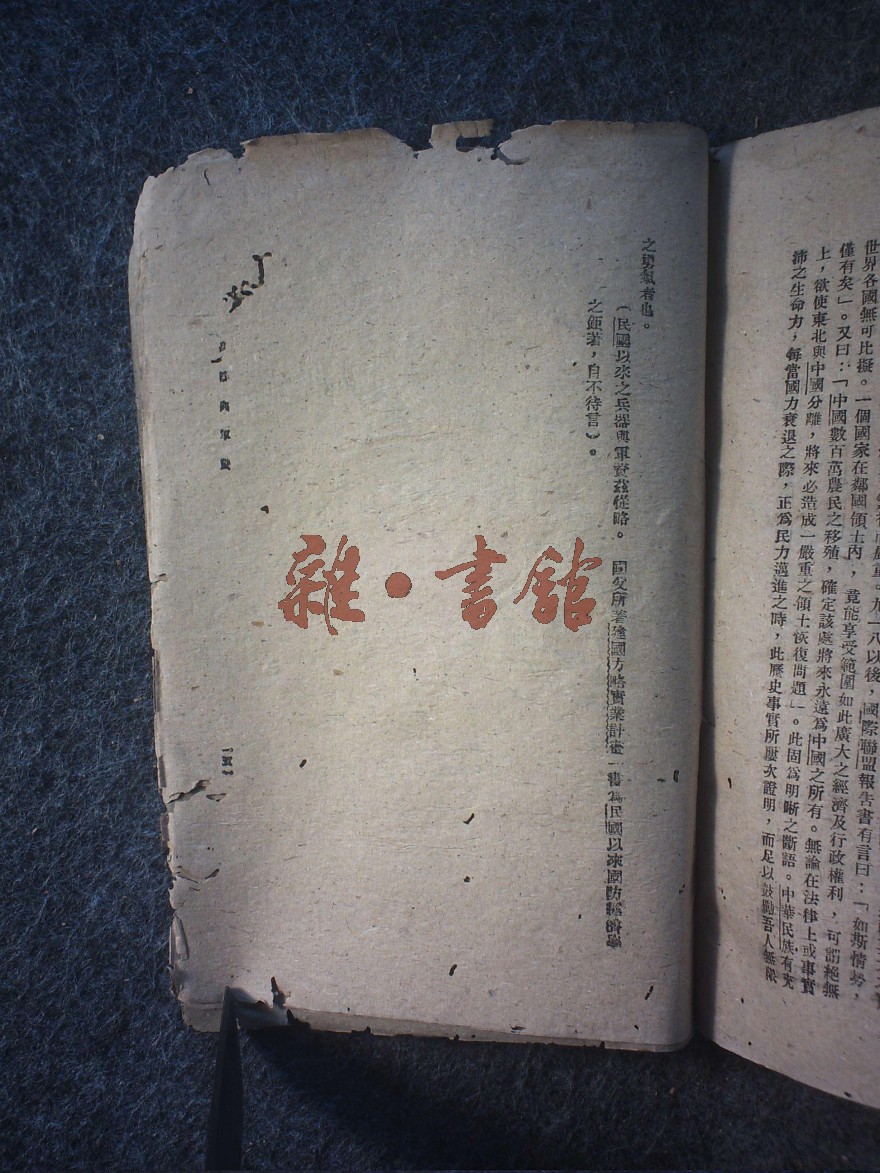 世界各國無可比擬。一個國家在鄰國領土內，竟能享受範圍如此廣大之經濟及行政權利，可謂絕無
僅有矣」。又曰：「中國數百萬農民之移殖，確定該處將來永遠為中國之所有。無論在法律上或事實
上，欲使東北與中國分離，將來必造成一嚴重之領土恢復問題」。此固為明晰之斷語。中華民族有充
沛之生命力，每當國力衰退之際，正為民力邁進之時，此歷史事實所屢次證明，而足以鼓勵吾人無限
之勇氣者也。
（民國以來之兵器與軍資茲從略。 國父所著建國方略實業計畫一書為民國以來國防經濟學
之鉅著，自不待言）。
雜·書館